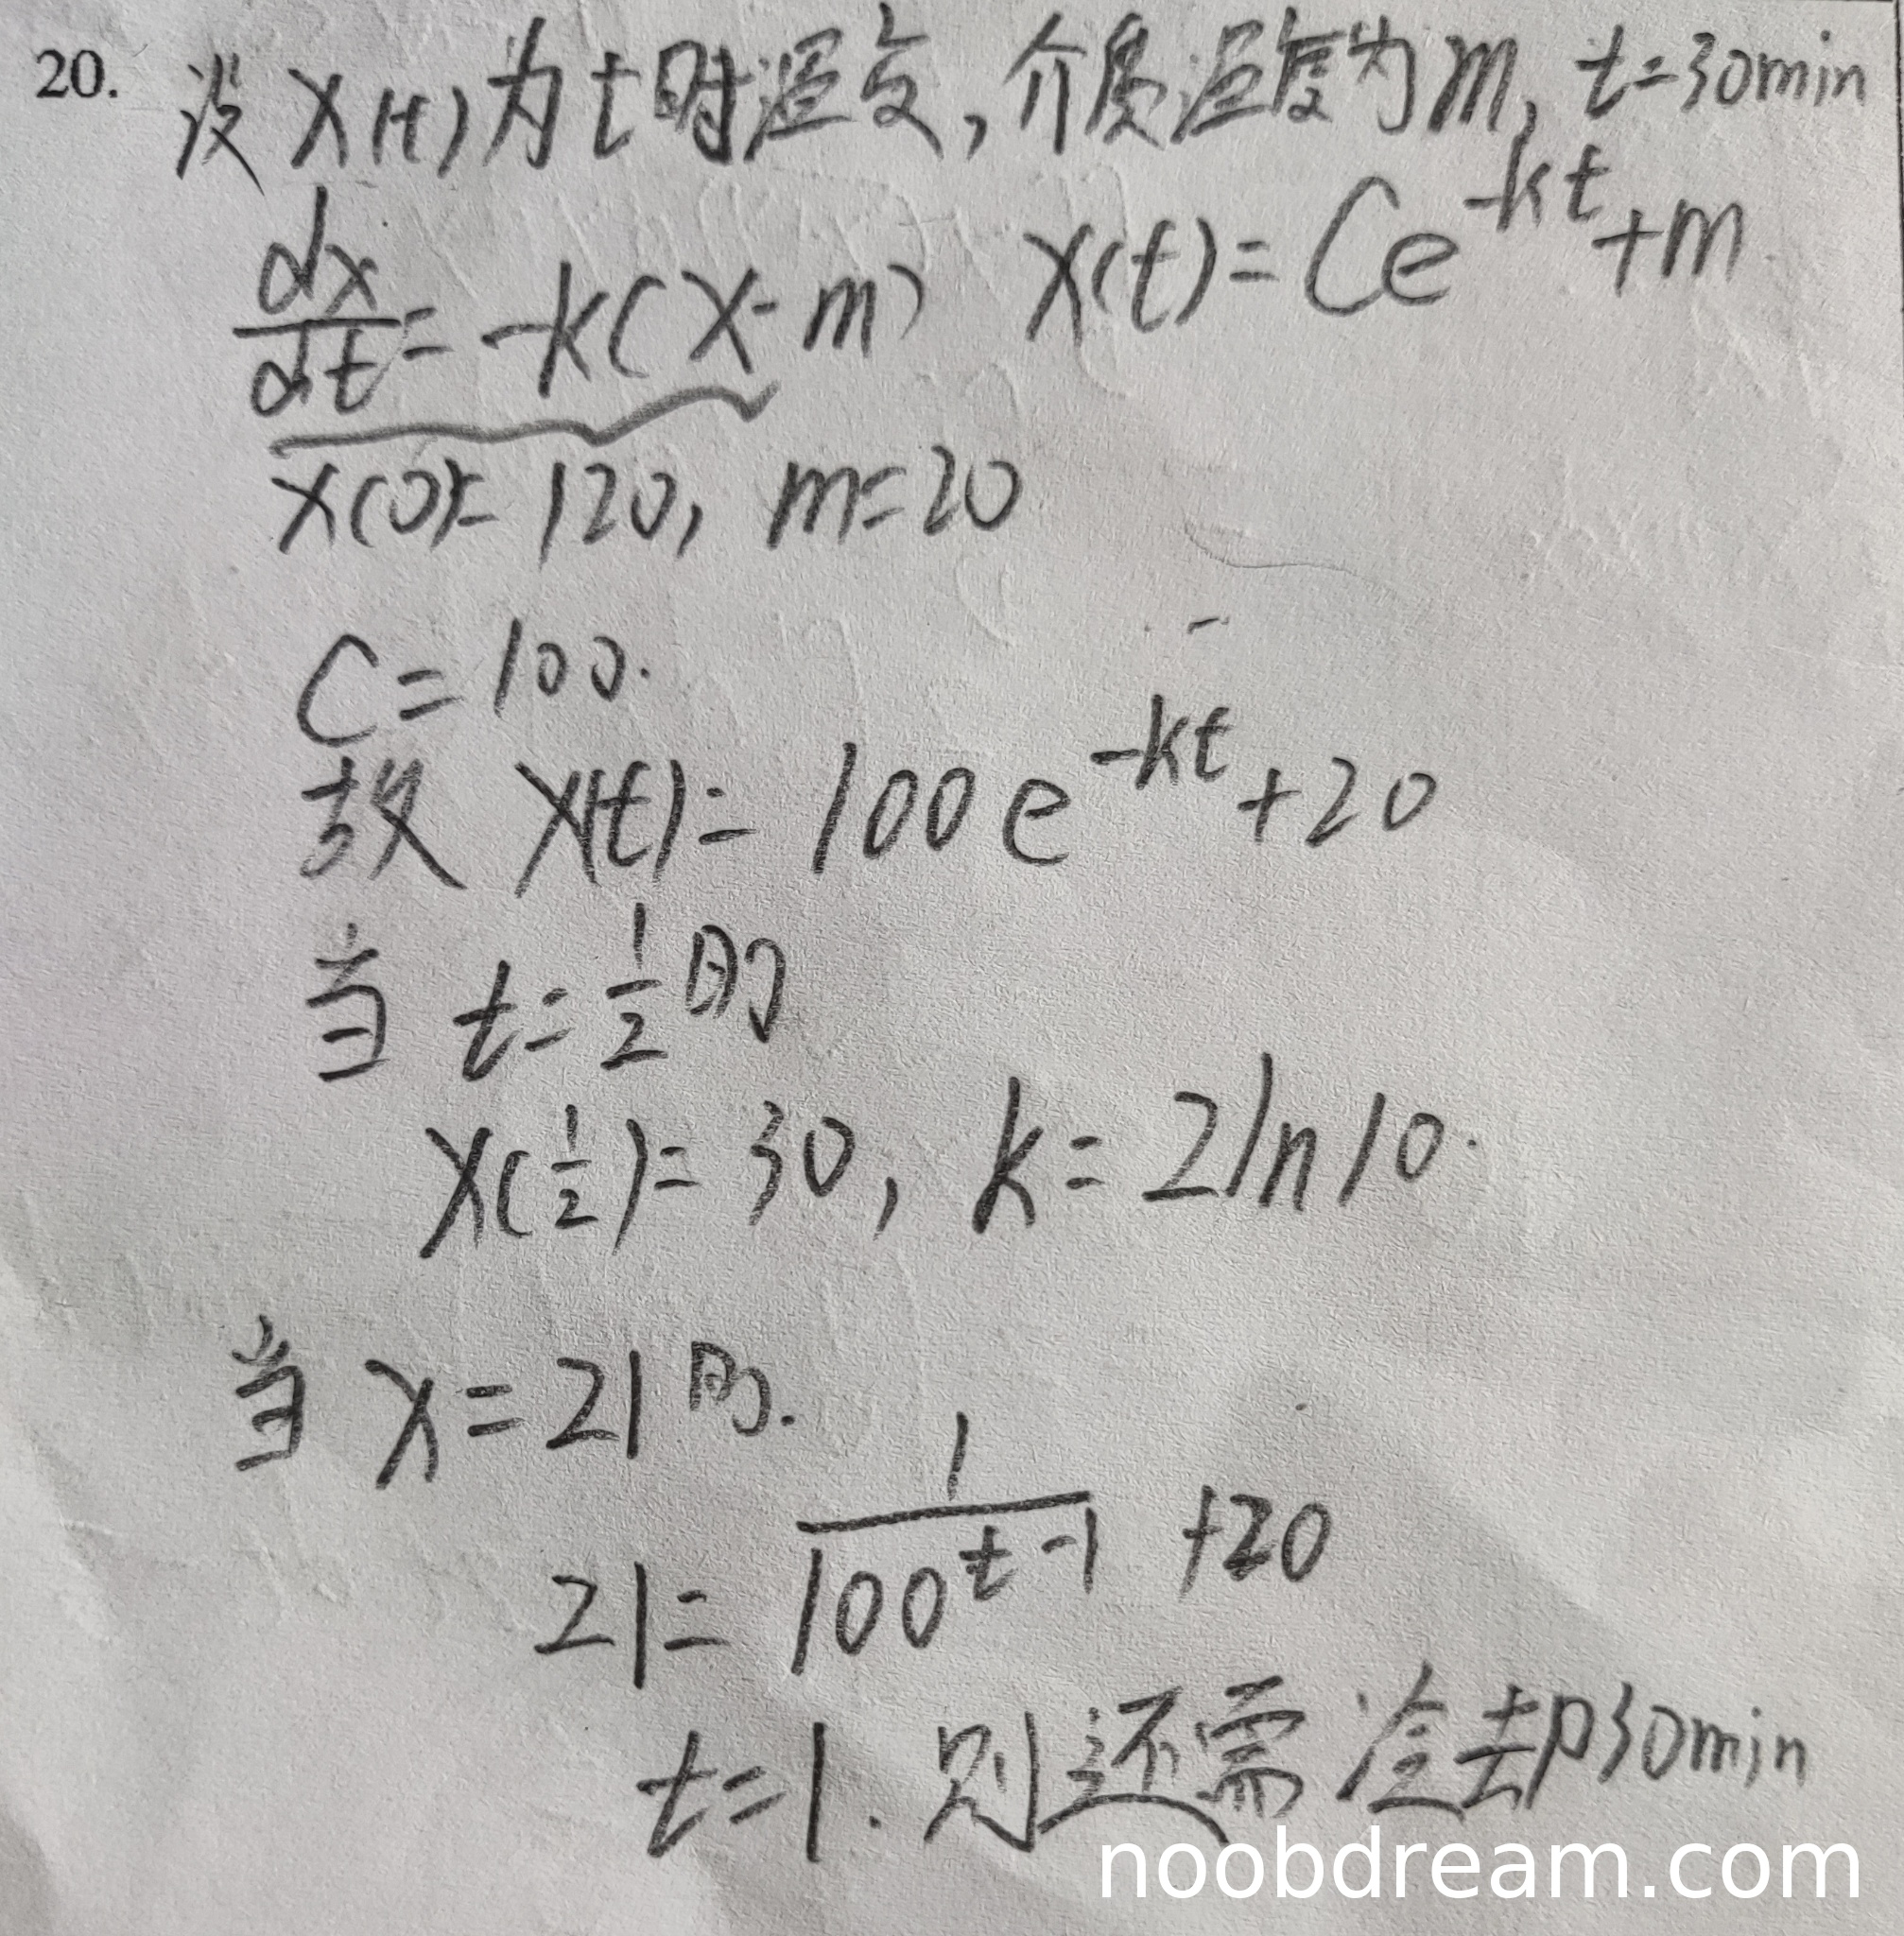 20. 设 x(t) 为 t 时温度, 介质温度为 m, t=30min
dx/dt = -k(x-m) x(t) = Ce^{-kt}+m
x(0)=120, m=20
C=100.
故 x(t)=100e^{-kt}+20
当 t=1/2 时
x(1/2)=30, k=2ln10.
当 x=21时.
21= 1/100^{t-1} +20
t=1. 则还需冷却30min
noobdream.com